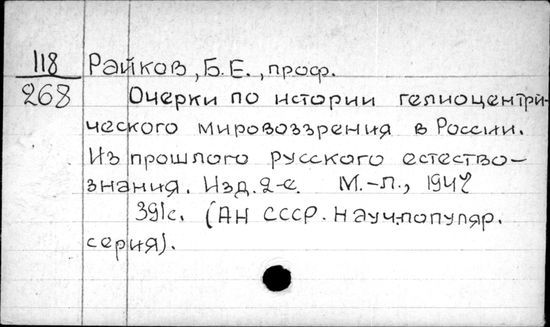 118 Райков, Б.Е., проф.
268 Очерки по истории гелиоцентри-
ческого мировоззрения в России.
Из прошлого русского естество-
знания. Изд. 2-е. М.-Л., 1947
391с. (АН СССР. Науч.-популяр.
серия).